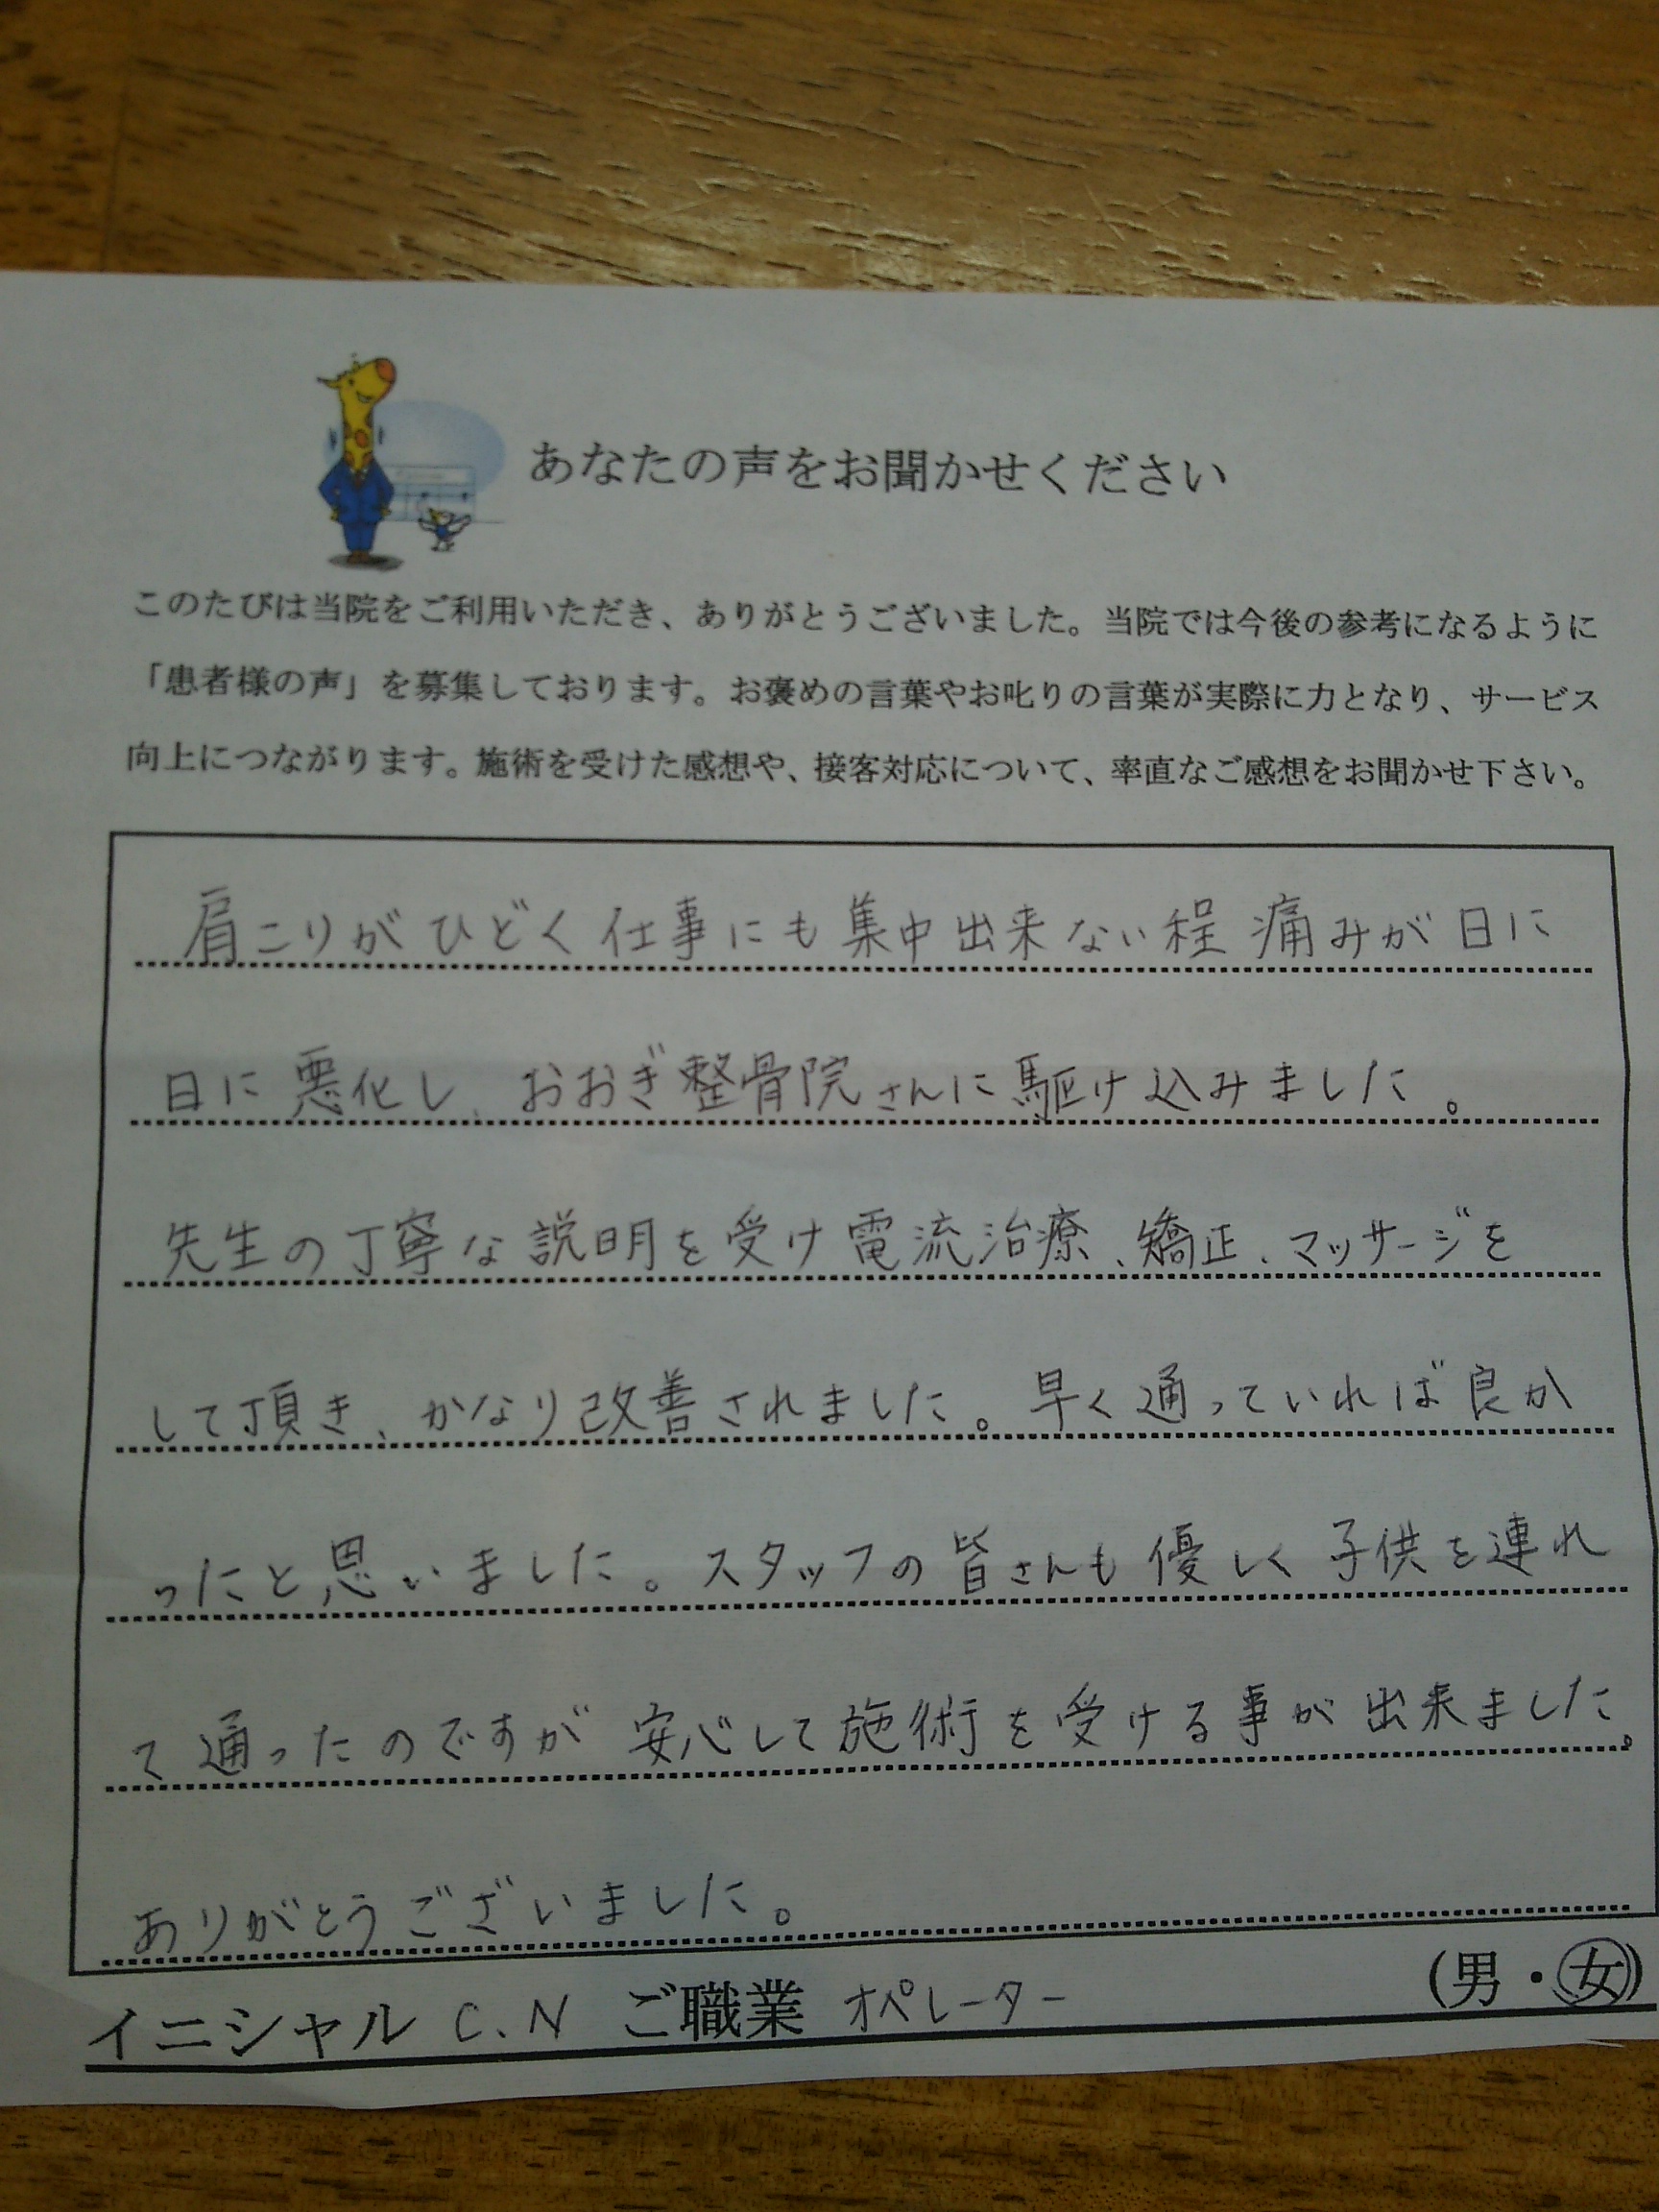 あなたの声をお聞かせください
このたびは当院をご利用いただき、ありがとうございました。当院では今後の参考になるように
「患者様の声」を募集しております。お褒めの言葉やお叱りの言葉が実際に力となり、サービス
向上につながります。施術を受けた感想や、接客対応について、率直なご感想をお聞かせ下さい。
肩こりがひどく仕事にも集中出来ない程痛みが日に
日に悪化し、おおぎ整骨院さんに駆け込みました。
先生の丁寧な説明を受け電流治療、矯正、マッサージを
して頂き、かなり改善されました。早く通っていれば良か
ったと思いました。スタッフの皆さんも優しく子供を連れ
て通ったのですが安心して施術を受ける事が出来ました。
ありがとうございました。
イニシャル C.N ご職業 オペレーター (男・女)